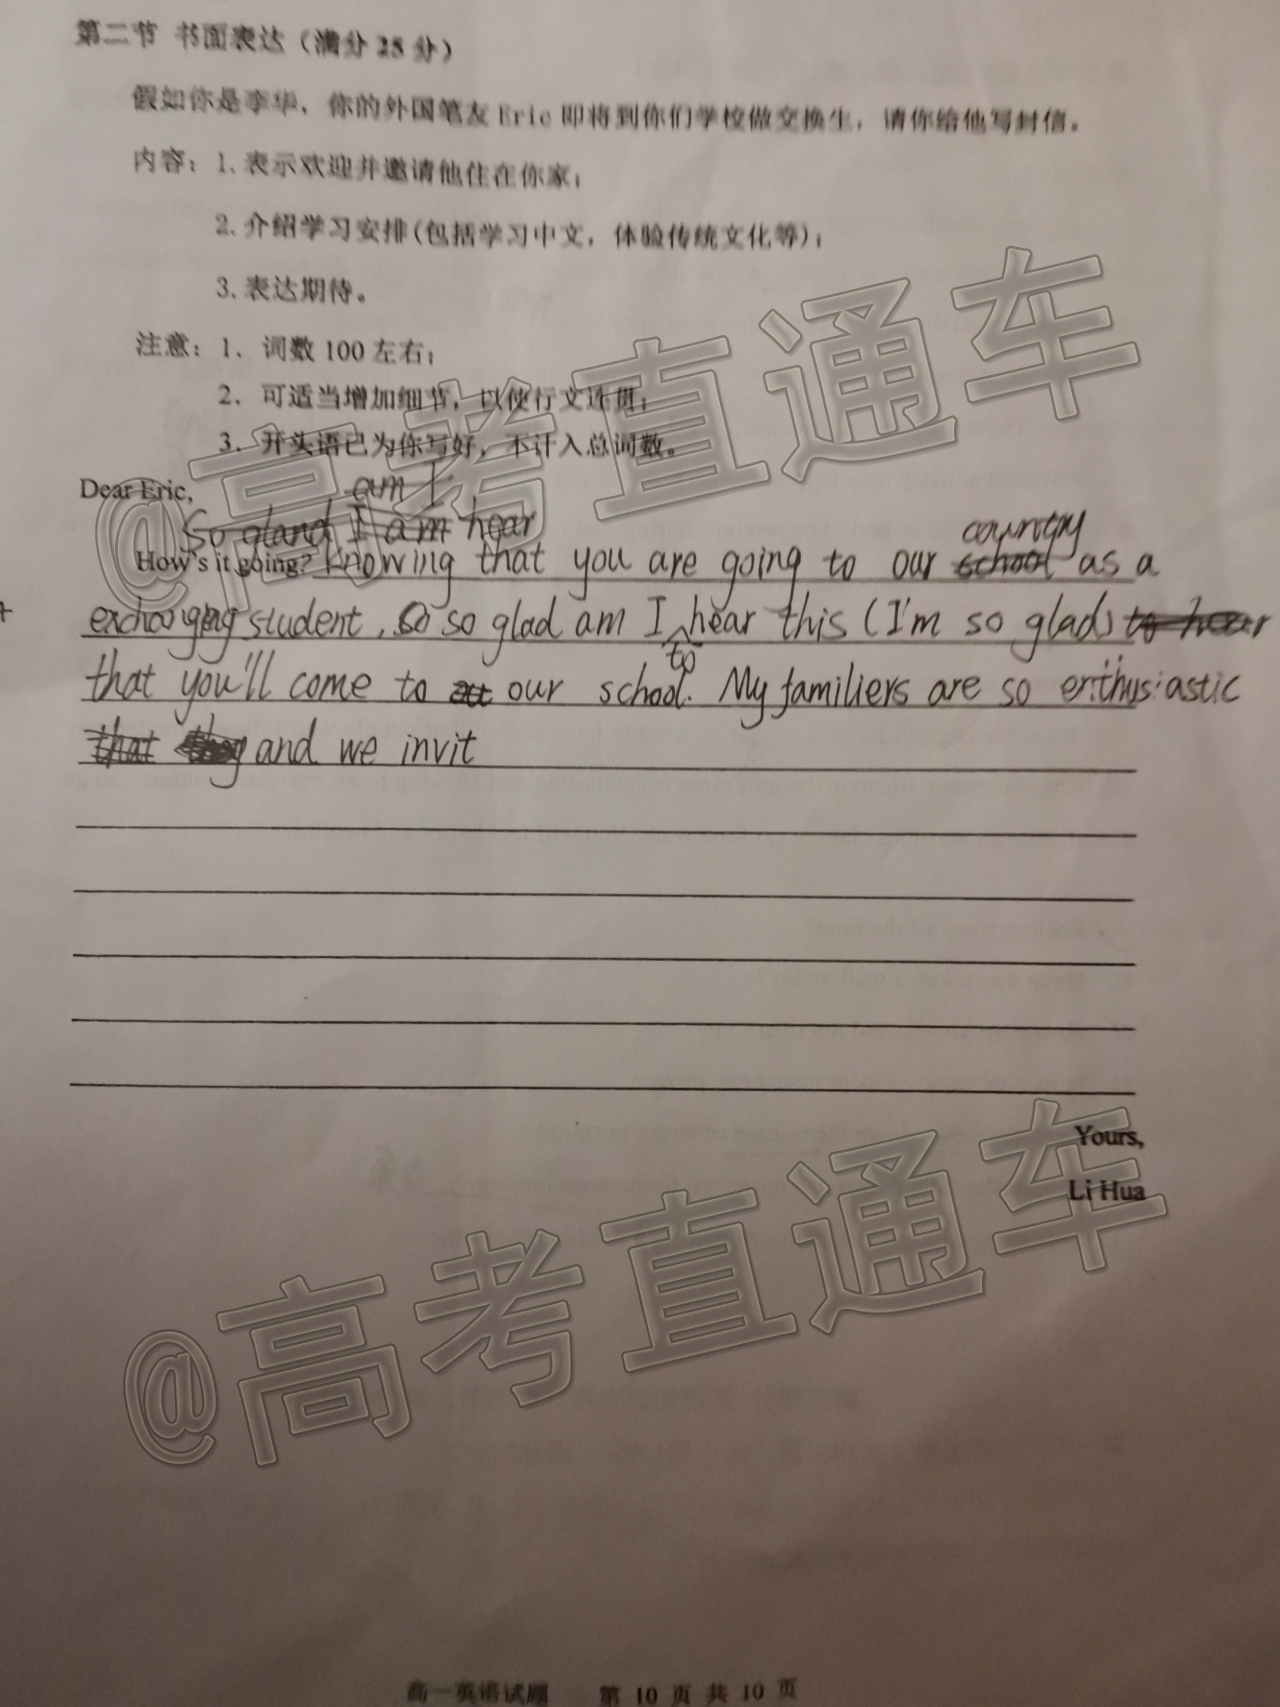 第二节 书面表达（满分25分）
假如你是李华，你的外国笔友Eric即将到你们学校做交换生，请你给他写封信。
内容：1.表示欢迎并邀请他住在你家；
2.介绍学习安排(包括学习中文，体验传统文化等)；
3.表达期待。
注意：1．词数100左右；
2．可适当增加细节，以使行文连贯；
3．开头语已为你写好，不计入总词数。
Dear Eric,
am I
So gland I am hear
country
How's it going? Knowing that you are going to our school as a
student, so glad am I hear this (I'm so glad) to hear
to
that you'll come to our school. My familiers are so enthusiastic
that they and we invit
Yours,
Li Hua
@高考直通车
@高考直通车
高一英语试题 第 10 页 共 10 页